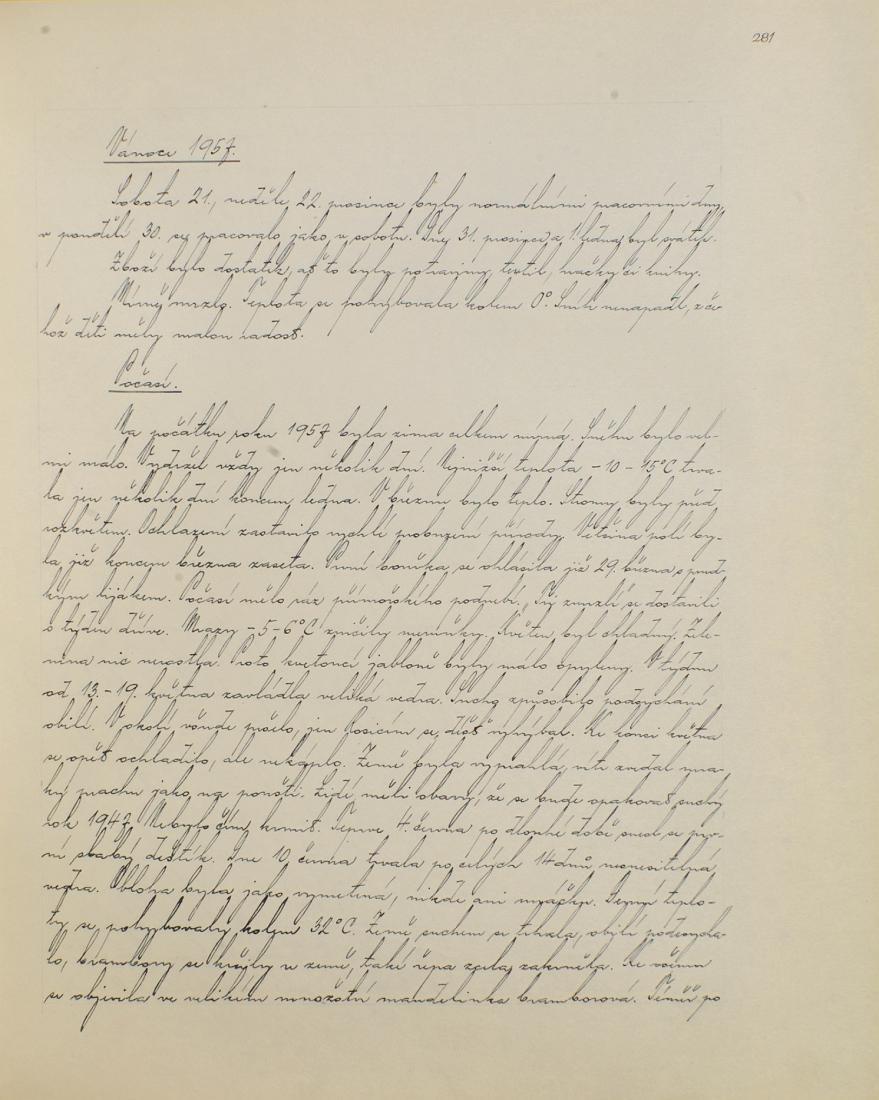 281
Vánoce 1957.
Sobota 21., neděle 22. prosince byly normálními pracovními dny,
v pondělí 30. se pracovalo jako v sobotu. Dne 31. prosince a 1. ledna byl svátek.
Zboží bylo dostatek, ať to byly potraviny, textil, hračky či knihy.
Mírně mrzlo. Teplota se pohybovala kolem 0°. Sníh nenapadl, z če-
hož děti měly malou radost.
Počasí.
Na počátku roku 1957 byla zima celkem mírná. Sněhu bylo vel-
mi málo. Vydržel vždy jen několik dní. Nejnižší teplota -10 - 15°C trva-
la jen několik dní koncem ledna. V březnu bylo teplo. Stromy byly před
rozkvětem. Ochlazení zastavilo rychlé probuzení přírody. Většina polí by-
la již koncem března zaseta. První bouřka se ohlásila již 29. března s prud-
kým lijákem. Počasí mělo ráz přímořského podnebí. "Tři zmrzlí" se dostavili
o týden dříve. Mrazy -5-6°C zničily meruňky. Květen byl chladný. Zele-
nina nic nerostla. Proto kvetoucí jabloně byly málo opyleny. V týdnu
od 13.-19. května zavládla veliká vedra. Sucho způsobilo podsychání
obilí. V okolí všude pršelo, jen Rosicím se déšť vyhýbal. Ke konci května
se opět ochladilo, ale nekáplo. Země byla vyprahlá, vítr zvedal mra-
ky prachu jako na poušti. Lidé měli obavy, že se bude opakovat suchý
rok 1947. Nebylo čím krmit. Teprve 4. června po dlouhé době snesl se prv-
ní slabý deštík. Dne 10. června trvala po celých 14 dnů nesnesitelná
vedra. Obloha byla jako vymetená, nikde ani mráčku. Denní teplo-
ty se pohybovaly kolem 32°C. Země suchem se trhala, obilí podsycha-
lo, brambory se krčily v zemi, také řepa zcela zakrněla. Ke všemu
se objevila ve velikém množství mandelinka bramborová. Téměř po